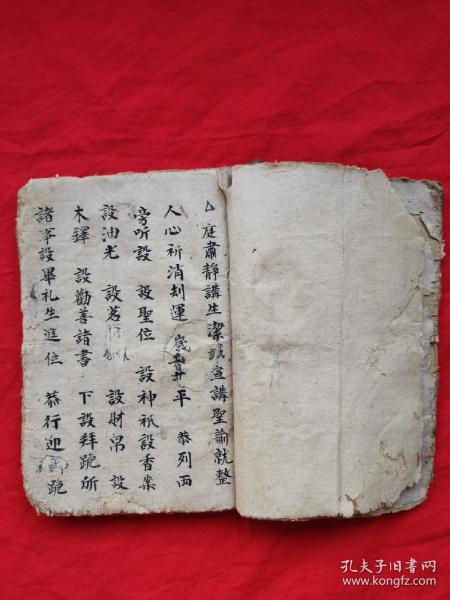 厶庭肅靜講生潔誠宣講聖諭就整
人心祈消刦運歲晉昇平 恭列両
旁听設 設聖位 設神祇設香案
設油光 設茗 設財帛 設
木鐸 設勸善諸書 下設拜跪所
諸事設畢礼生進位 恭行迎 跪
孔夫子旧書网
www.kongfz.com